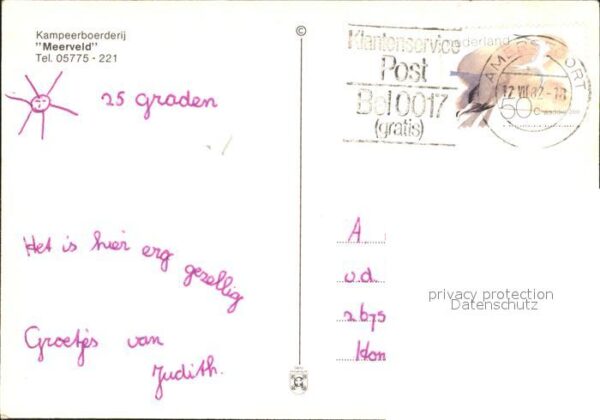 Kampeerboerderij
"Meerveld"
Tel. 05775 - 221
25 graden
Het is hier erg gezellig
Groetjes van
Judith.
©
Klantenservice
Post
Bel 0017
(gratis)
nederland
AMERSFOORT
12 VII 82 - 18
50 c
A
v.d.
2675
Hon
privacy protection
Datenschutz